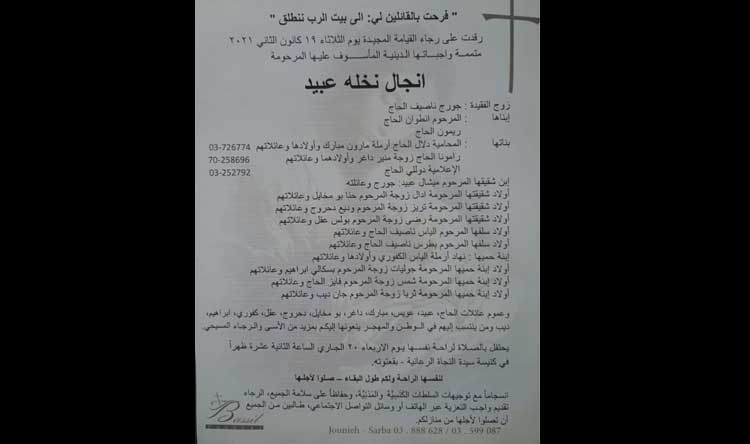 " فرحت بالقائلين لي: الى بيت الرب ننطلق "
رقدت على رجاء القيامة المجيدة يوم الثلاثاء ١٩ كانون الثاني ٢٠٢١
متممة واجباتها الدينية المأسوف عليها المرحومة
انجال نخله عبيد
زوج الفقيدة : جورج ناصيف الحاج
إبناها : المرحوم انطوان الحاج
ريمون الحاج
بناتها : المحامية دلال الحاج أرملة مارون مبارك وأولادها وعائلاتهم 03-726774
رامونا الحاج زوجة منير داغر وأولادهما وعائلاتهم 70-258696
الإعلامية دوللي الحاج 03-252792
إبن شقيقها المرحوم ميشال عبيد: جورج وعائلته
أولاد شقيقتها المرحومة ادال زوجة المرحوم حنا بو مخايل وعائلاتهم
أولاد شقيقتها المرحومة تريز زوجة المرحوم وديع دحروج وعائلاتهم
أولاد شقيقتها المرحومة رضى زوجة المرحوم بولس عقل وعائلاتهم
أولاد سلفها المرحوم الياس ناصيف الحاج وعائلاتهم
أولاد سلفها المرحوم بطرس ناصيف الحاج وعائلاتهم
إبنة حميها : نهاد أرملة الياس الكفوري وأولادها وعائلاتهم
أولاد إبنة حميها المرحومة جوليات زوجة المرحوم بسكالي ابراهيم وعائلاتهم
أولاد إبنة حميها المرحومة شمس زوجة المرحوم فايز الحاج وعائلاتهم
أولاد إبنة حميها المرحومة ثريا زوجة المرحوم جان ديب وعائلاتهم
وعموم عائلات الحاج، عبيد، عويس، مبارك، داغر، بو مخايل، دحروج، عقل، كفوري، ابراهيم،
ديب ومن ينتسب إليهم في الوطن والمهجر ينعونها إليكم بمزيد من الأسى والرجاء المسيحي.
يحتفل بالصلاة لراحة نفسها يوم الاربعاء ٢٠ الجاري الساعة الثانية عشرة ظهراً
في كنيسة سيدة النجاة الرعائية - بقعتوته.
لنفسها الراحة ولكم طول البقاء – صلوا لأجلها
انسجاماً مع توجيهات السلطات الكنسيّة والمدنيّة، وحفاظاً على سلامة الجميع، الرجاء
تقديم واجب التعزية عبر الهاتف أو وسائل التواصل الاجتماعي، طالبين من الجميع
أن تصلوا لأجلها من منازلكم.
Bassil
Jounieh - Sarba 03 . 888 628 / 03 . 599 087